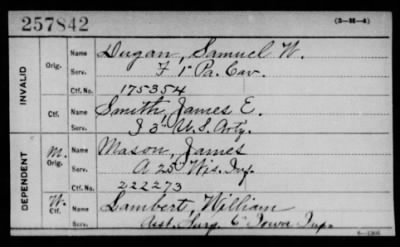 257842 (3—M—4)
INVALID
Orig. Name Dugan, Samuel W.
Serv. F 1 Pa. Cav.
Ctf. No. 175354
Ctf. Name Smith, James E.
Serv. I 3" U.S. Arty.
Ctf. No.
DEPENDENT
M. Orig. Name Mason, James
Serv. A 25 Wis. Inf.
Ctf. No. 222273
W. Ctf. Name Lambert, William
Serv. Asst. Surg. 6" Iowa Inf.